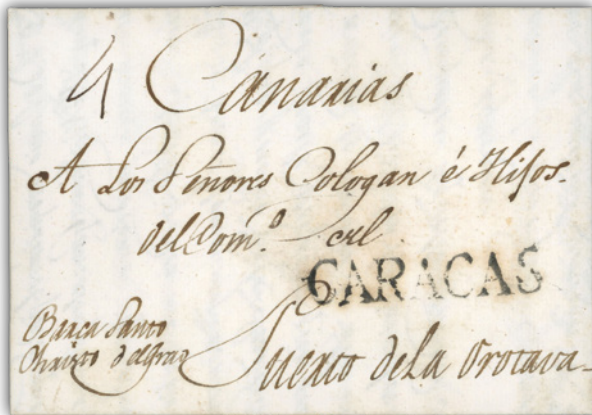 4 Canarias
A Los Señores Cologan é Hijos.
del Com.º en el
CARACAS
Barca Santo
Christo del Grao
Puerto de La Orotava